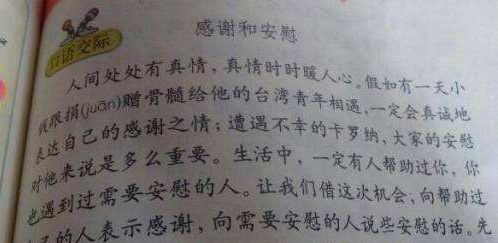 感谢和安慰
口语交际
人间处处有真情，真情时时暖人心。假如有一天小
钱限捐(juān)赠骨髓给他的台湾青年相遇，一定会真诚地
表达自己的感谢之情；遭遇不幸的卡罗纳，大家的安慰
对他来说是多么重要。生活中，一定有人帮助过你，你
也遇到过需要安慰的人。让我们借这次机会，向帮助过
的人表示感谢，向需要安慰的人说些安慰的话。先